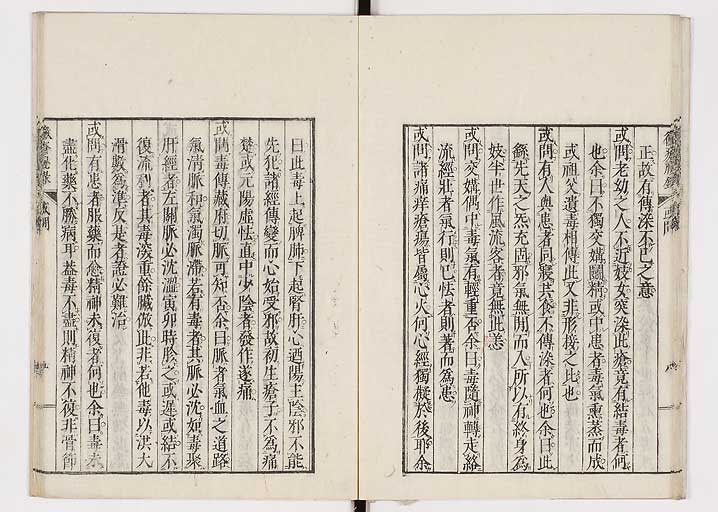 正故有傳染不已之意
或問老幼之人不近妓女突染此瘡竟有結毒者何
也余曰不獨交媾鬪精或中患者毒氣熏蒸而成
或祖父遺毒相傳此又非形接之比也
或問有人與患者同寢共食不傳染者何也余曰此
繇先天之炁充固邪氣無間而入所以有終身為
妓半世作風流客者竟無此恙
或問交媾偶中毒氣有輕重否余曰毒隨神轉走絡
流經壯者氣行則已怯者則著而為患
或問諸痛痒瘡瘍皆屬心火何心經獨擬於後耶余
曰此毒上起脾肺下起腎肝心迺陽主陰邪不能
先犯諸經傳變而心始受邪故初生瘡子不為痛
楚或元陽虛怯直中少陰者發作遂痛
或問毒傳藏府切脈可知否余曰脈者氣血之道路
氣清脈和氣濁脈滯若有毒者其脈必沈如毒聚
肝經者左關脈必沈溫寅卯時胗之或遲或結不
復流利者其毒深重餘臟倣此非若他毒以洪大
滑數為準反是者證必難治
或問有患者服藥而愈精神未復者何也余曰毒未
盡化藥不勝病耳葢毒不盡則精神不復非骨節